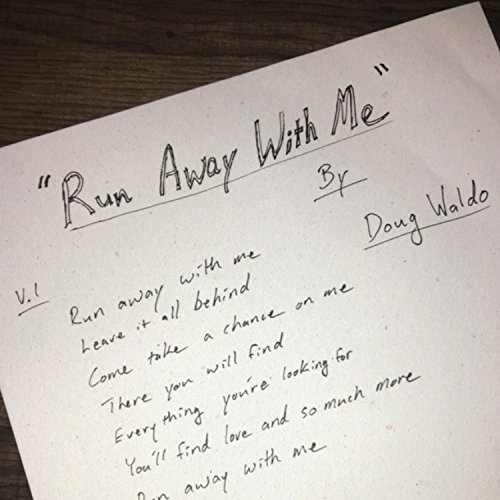 "Run Away With Me"
By
Doug Waldo
V.1
Run away with me
Leave it all behind
Come take a chance on me
There you will find
Everything you're looking for
You'll find love and so much more
Run away with me